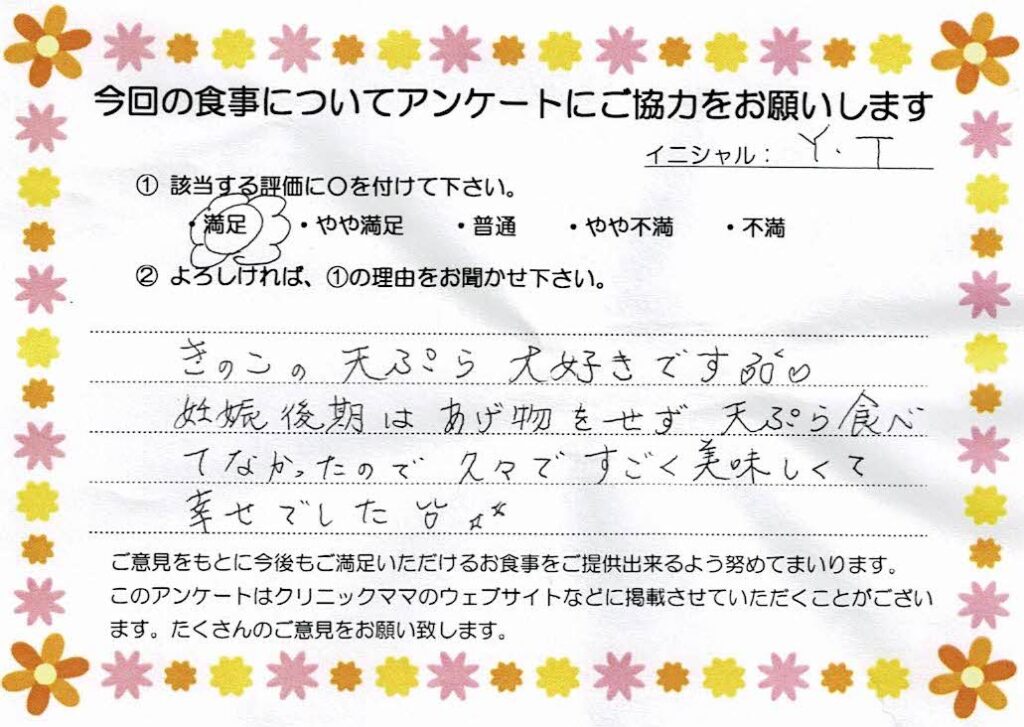 今回の食事についてアンケートにご協力をお願いします
イニシャル： Y.T
① 該当する評価に〇を付けて下さい。
・満足 ・やや満足 ・普通 ・やや不満 ・不満
② よろしければ、①の理由をお聞かせ下さい。
きのこの天ぷら大好きです
妊娠後期はあげ物をせず天ぷら食べ
てなかったので久々ですごく美味しくて
幸せでした
ご意見をもとに今後もご満足いただけるお食事をご提供出来るよう努めてまいります。
このアンケートはクリニックママのウェブサイトなどに掲載させていただくことがござい
ます。たくさんのご意見をお願い致します。